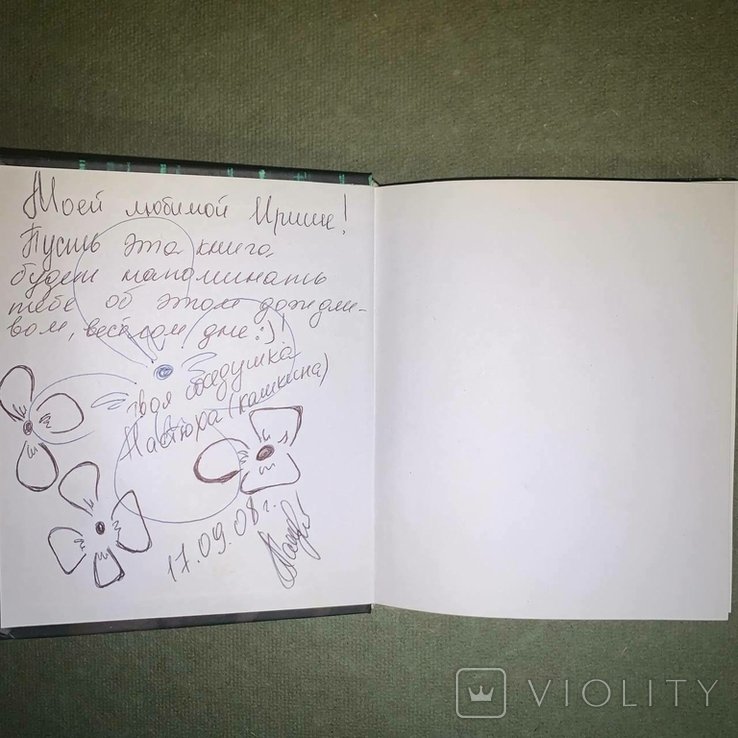 Моей любимой Ирише!
Пусть эта книга
будет напоминать
тебе об этом дождли-
вом, весёлом дне :)!
твоя бадушка
Настюха (кашкина)
17.09.08 г.
VIOLITY